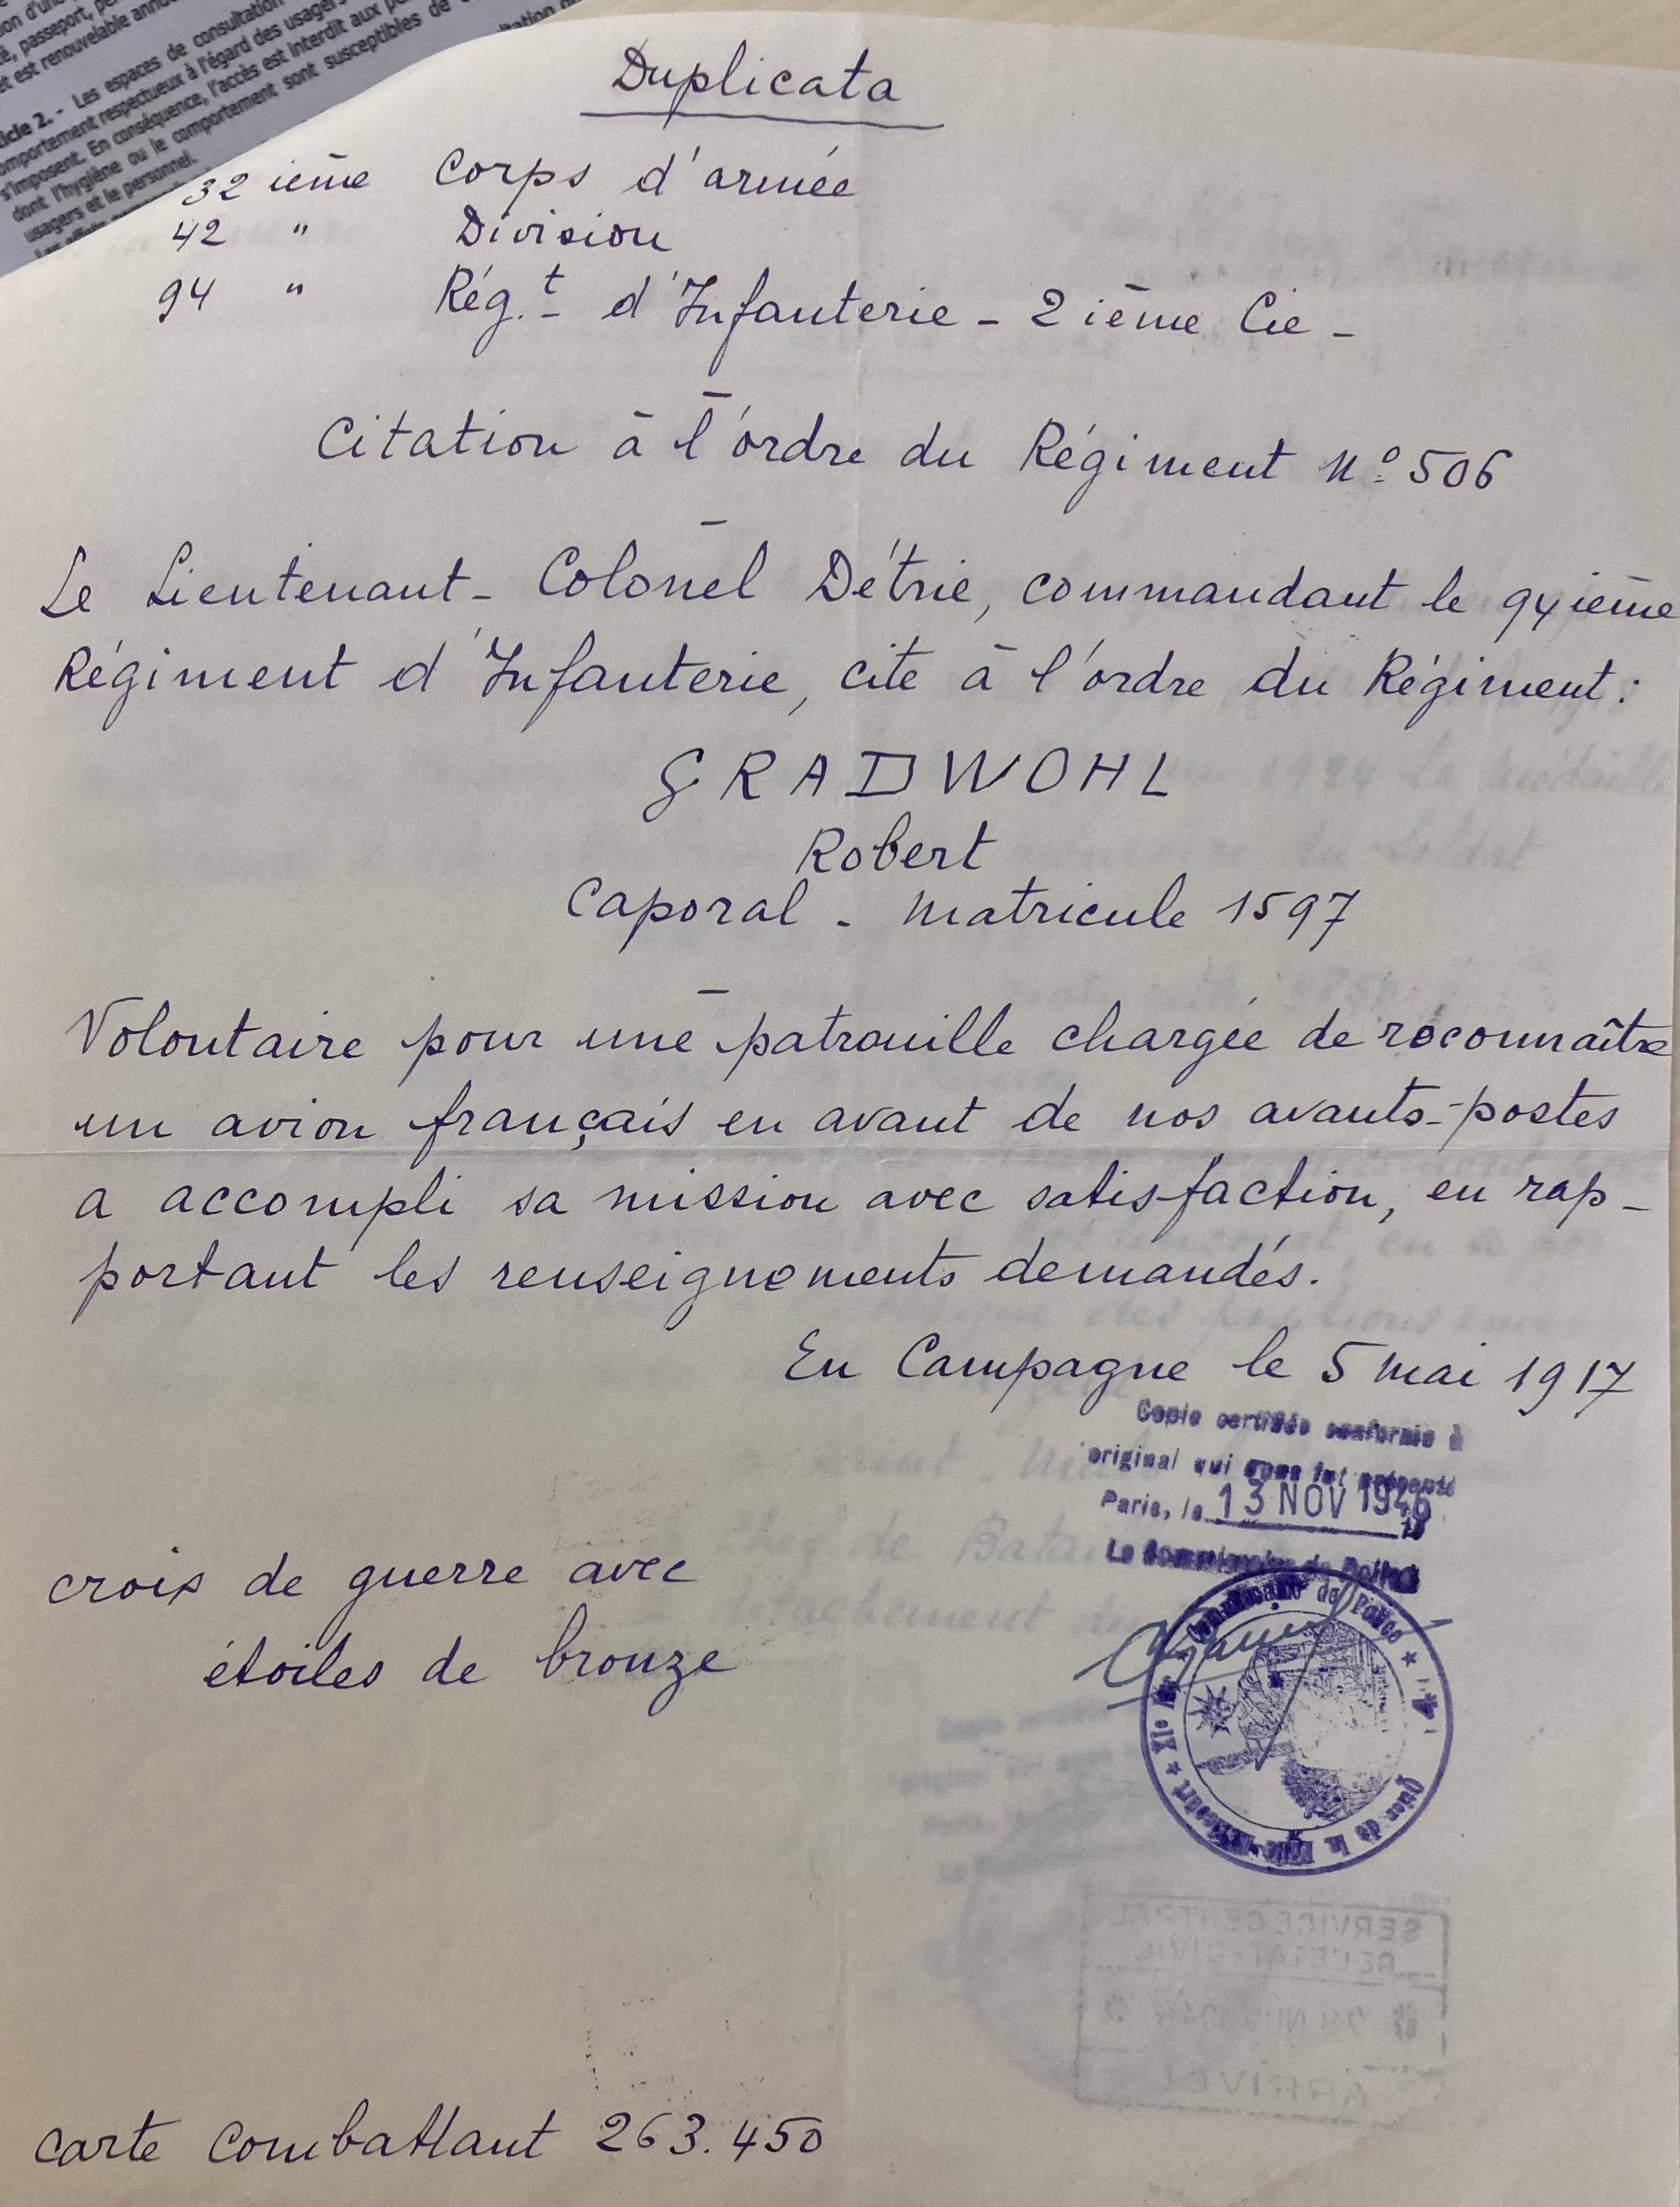 icle 2. - Les espaces de consultation
comportement respectueux à l'égard des usagers
s'imposent. En conséquence, l'accès est interdit aux
dont l'hygiène ou le comportement sont susceptibles de
usagers et le personnel.
Duplicata
32 ième Corps d'armée
42 " Division
94 " Rég.t d'Infanterie - 2 ième Cie -
Citation à l'ordre du Régiment N° 506
Le Lieutenant - Colonel Détrie, commandant le 94 ième
Régiment d'Infanterie, cite à l'ordre du Régiment :
GRADWOHL
Robert
Caporal - Matricule 1597
Volontaire pour une patrouille chargée de reconnaître
un avion français en avant de nos avants-postes
a accompli sa mission avec satisfaction, en rap-
portant les renseignements demandés.
En Campagne le 5 mai 1917
Copie certifiée conforme à
original qui
Paris, le 13 NOV 1946
Le Commissaire de Police
croix de guerre avec
étoiles de bronze
carte combattant 263.450